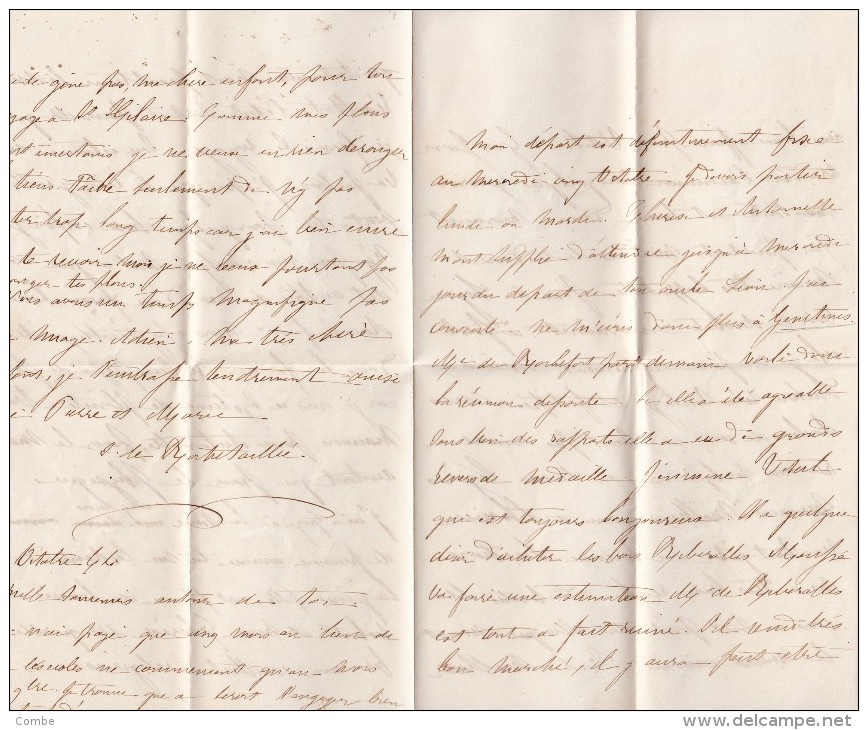 de gêne pas, ma chère enfant, pour ton
voyage à St Hilaire. Comme mes plans
sont incertains je ne veux en rien déranger
tiens. Tâche seulement de n'y pas
rester trop long temps car j'ai bien envie
te revoir mais je ne veux pourtant pas
déranger tes plans.
avons un temps magnifique pas
nuage. Adieu, Ma très chère
je t'embrasse tendrement ainsi
Pierre et Marie
S. de Rochetaillée
Octobre
mille souvenirs autour de toi.
payé que cinq mois au lieu de
écoles ne commencent qu'au mois
je trouve que bien
Mon départ est définitivement fixé
au mercredi cinq Octobre. Je devais partir
lundi ou mardi. Thérèse et Antoinette
m'ont supplié d'attendre jusqu'à mercredi
jour du départ de ton oncle Léon. J'ai
consenti. ne m'écris donc plus à Genetines.
Mr de Rochefort part demain voilà donc
la réunion dissoute. Elle a été agréable
sous bien des rapports elle a eu de grands
revers de médaille
qui est toujours langoureux. Il a quelque
désir d'acheter les bois
va faire une estimation Mr de
est tout à fait ruiné. Il vend très
bon marché, il y aura peut être
Combe
www.delcampe.net